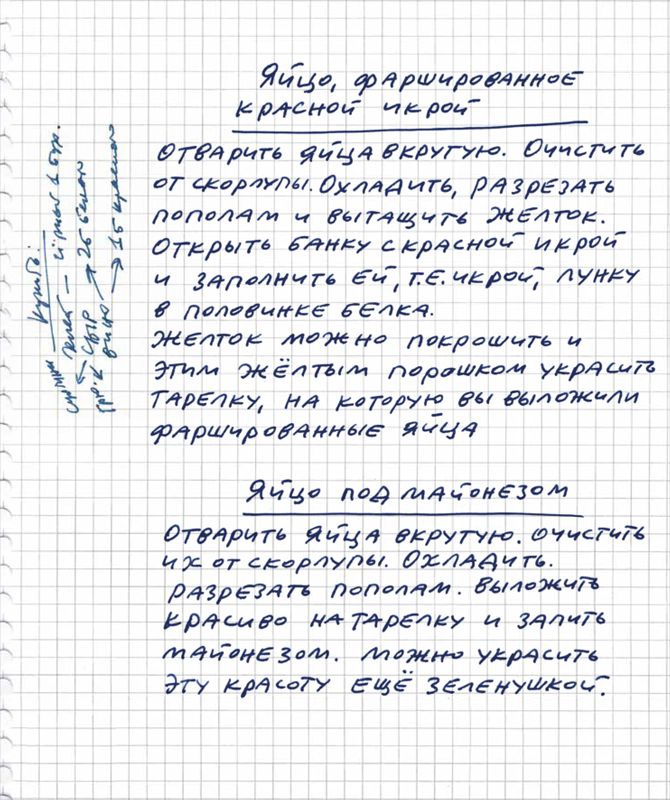 Яйцо, фаршированное
красной икрой
Отварить яйца вкрутую. Очистить
от скорлупы. Охладить, разрезать
пополам и вытащить желток.
Открыть банку с красной икрой
и заполнить ей, т.е. икрой, лунку
в половинке белка.
Желток можно покрошить и
этим жёлтым порошком украсить
тарелку, на которую вы выложили
фаршированные яйца
Яйцо под майонезом
Отварить яйца вкрутую. Очистить
их от скорлупы. Охладить.
Разрезать пополам. Выложить
красиво на тарелку и залить
майонезом. Можно украсить
эту красоту ещё зеленушкой.
Купить:
сыр
вино → 2б белого
→ 1б красного